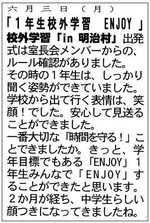 六月三日(月)
「1年生校外学習 ENJOY 」
校外学習「in 明治村」出発
式は室長会メンバーからの、
ルール確認がありました。
その時の1年生は、しっかり
聞く姿勢ができていました。
学校から出て行く表情は、笑
顔！でした。安心して見送る
ことができました。
一番大切な「時間を守る！」こ
とができたか。きっと、学
年目標でもある「ENJOY」1
年生みんなで「ENJOY」す
ることができたと思います。
2か月が経ち、中学生らしい
顔つきになってきましたね。